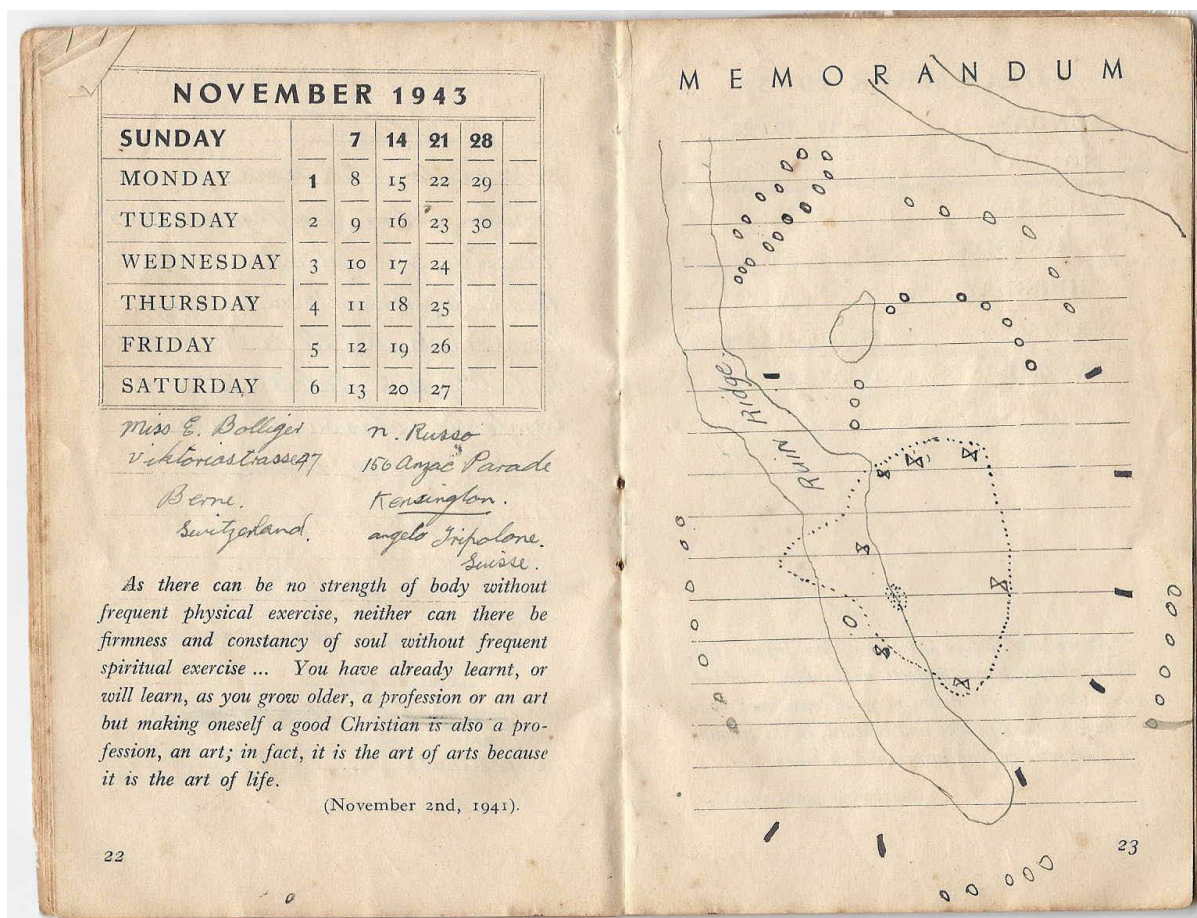 NOVEMBER 1943
SUNDAY 7 14 21 28
MONDAY 1 8 15 22 29
TUESDAY 2 9 16 23 30
WEDNESDAY 3 10 17 24
THURSDAY 4 11 18 25
FRIDAY 5 12 19 26
SATURDAY 6 13 20 27
Miss E. Bolliger
Viktoriastrasse 47
Berne.
Switzerland.
N. Russo
156 Anzac Parade
Kensington.
Angelo Tripolone.
Suisse.
As there can be no strength of body without
frequent physical exercise, neither can there be
firmness and constancy of soul without frequent
spiritual exercise ... You have already learnt, or
will learn, as you grow older, a profession or an art
but making oneself a good Christian is also a pro-
fession, an art; in fact, it is the art of arts because
it is the art of life.
(November 2nd, 1941).
22
MEMORANDUM
Ruin Ridge
23